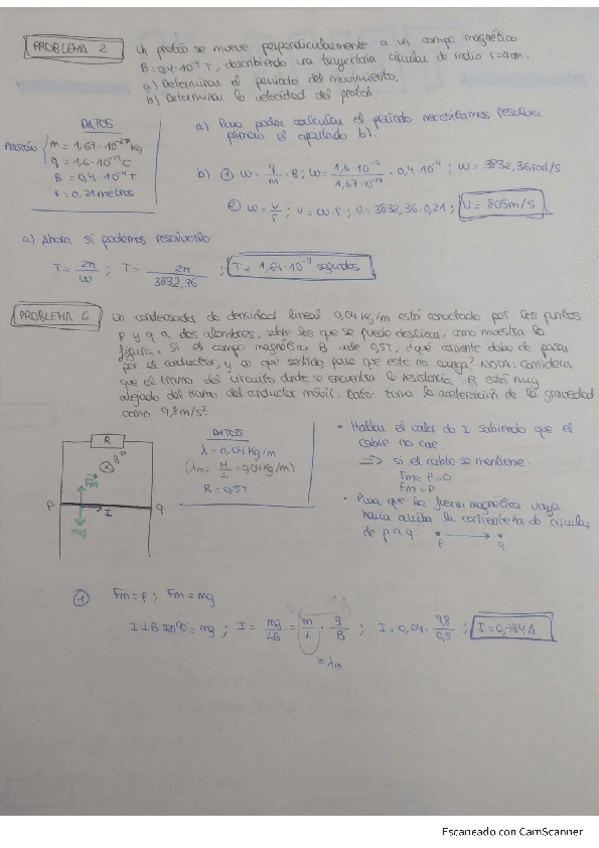 PROBLEMA 2
Un protón se mueve perpendicularmente a un campo magnético
B=0,4·10⁻⁴ T, describiendo una trayectoria circular de radio
a) Determinar el periodo del movimiento.
b) Determinar la velocidad del protón.
DATOS
PROTÓN m = 1,67·10⁻²⁷ kg
q = 1,6·10⁻¹⁹ C
B = 0,4·10⁻⁴ T
r = 0,21 metros
a) Para poder calcular el periodo necesitamos resolver
primero el apartado b).
b) ① ω = q/m · B; ω = 1,6·10⁻¹⁹/1,67·10⁻²⁷ · 0,4·10⁻⁴; ω = 3832,36 rad/s
② ω = v/r; v = ω·r; v = 3832,36·0,21; v = 805 m/s
a) Ahora si podemos resolverlo
T = 2π/ω; T = 2π/3832,36; T = 1,64·10⁻³ segundos
PROBLEMA 6
Un condensador de densidad lineal 0,04 kg/m está conectado por los puntos
p y q a dos alambres, sobre los que se puede deslizar, como muestra la
figura. Si el campo magnético B vale 0,5T, ¿qué corriente debe de pasar
por el conductor, y en qué sentido, para que este no caiga? NOTA: considera
que el tramo del circuito donde se encuentra la resistencia R está muy
alejado del tramo del conductor móvil. Dato: toma la aceleración de la gravedad
como 9,8 m/s²
R
B
Fm
P
I
Q
DATOS
λ = 0,04 kg/m
(λm = M/l = 0,04 kg/m)
B = 0,5T
• Hallar el valor de I sabiendo que el
cable no cae.
⇒ si el cable se mantiene:
Fm - P = 0
Fm = P
• Para que la fuerza magnética vaya
hacia arriba la corriente ha de circular
de p a q.
p → q
① Fm = P; Fm = mg
I·L·B sen90º = mg; I = mg/LB = m/L · g/B; I = 0,04 · 9,8/0,5; I = 0,784 A
* λm
Escaneado con CamScanner